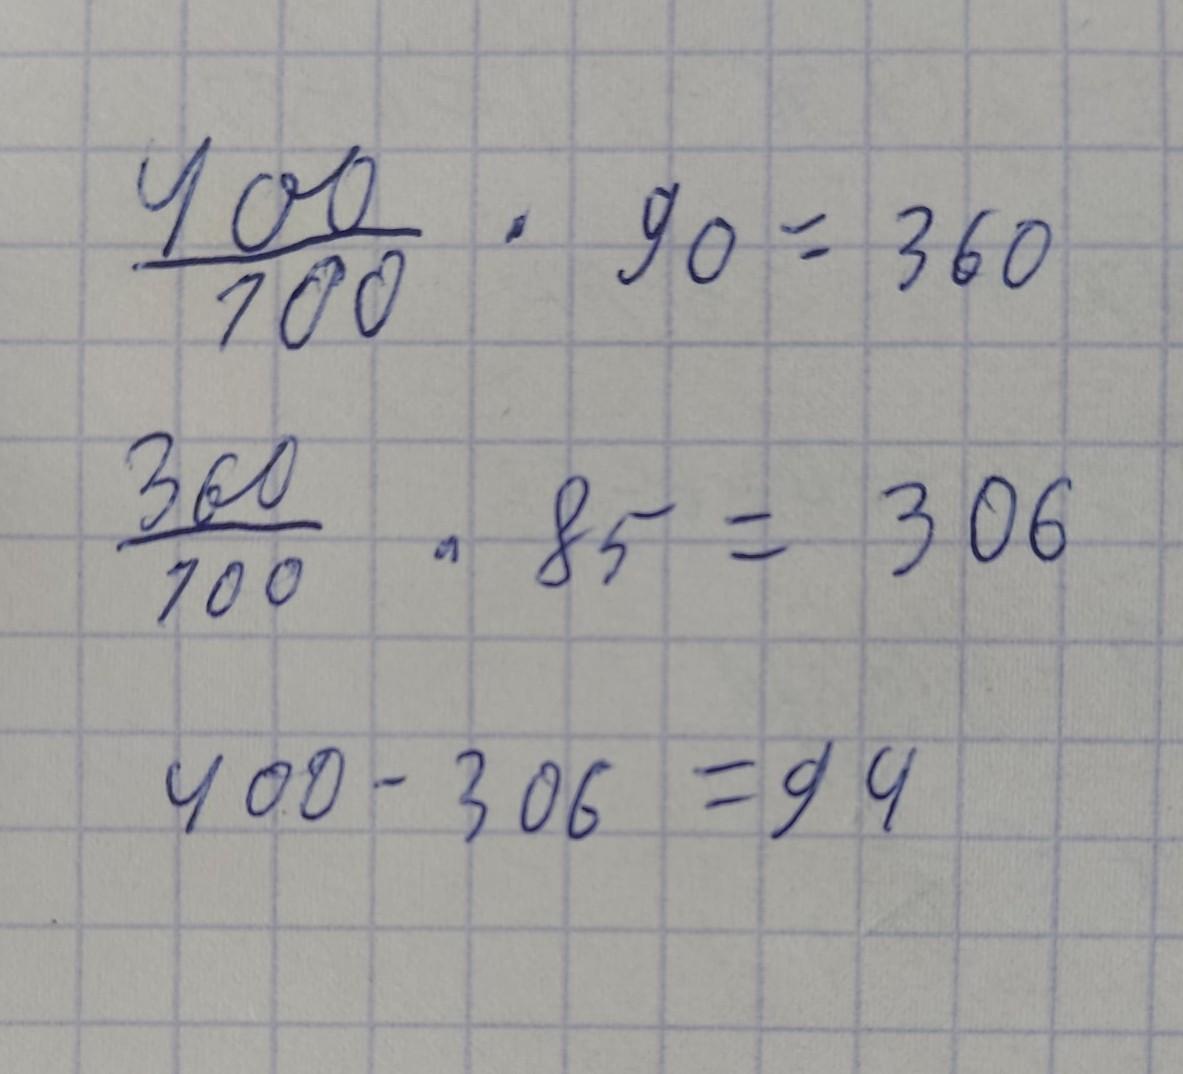 400/100 · 90 = 360
360/100 · 85 = 306
400 - 306 = 94